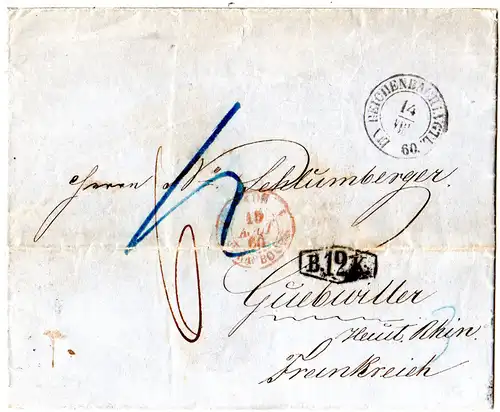 REICHENBACH i/VGTL.
14
VIII
60.
Herrn N. Schlumberger.
15
AOUT
60
B. 12 K.
Guebwiller
Haut Rhin.
Frankreich
6
3